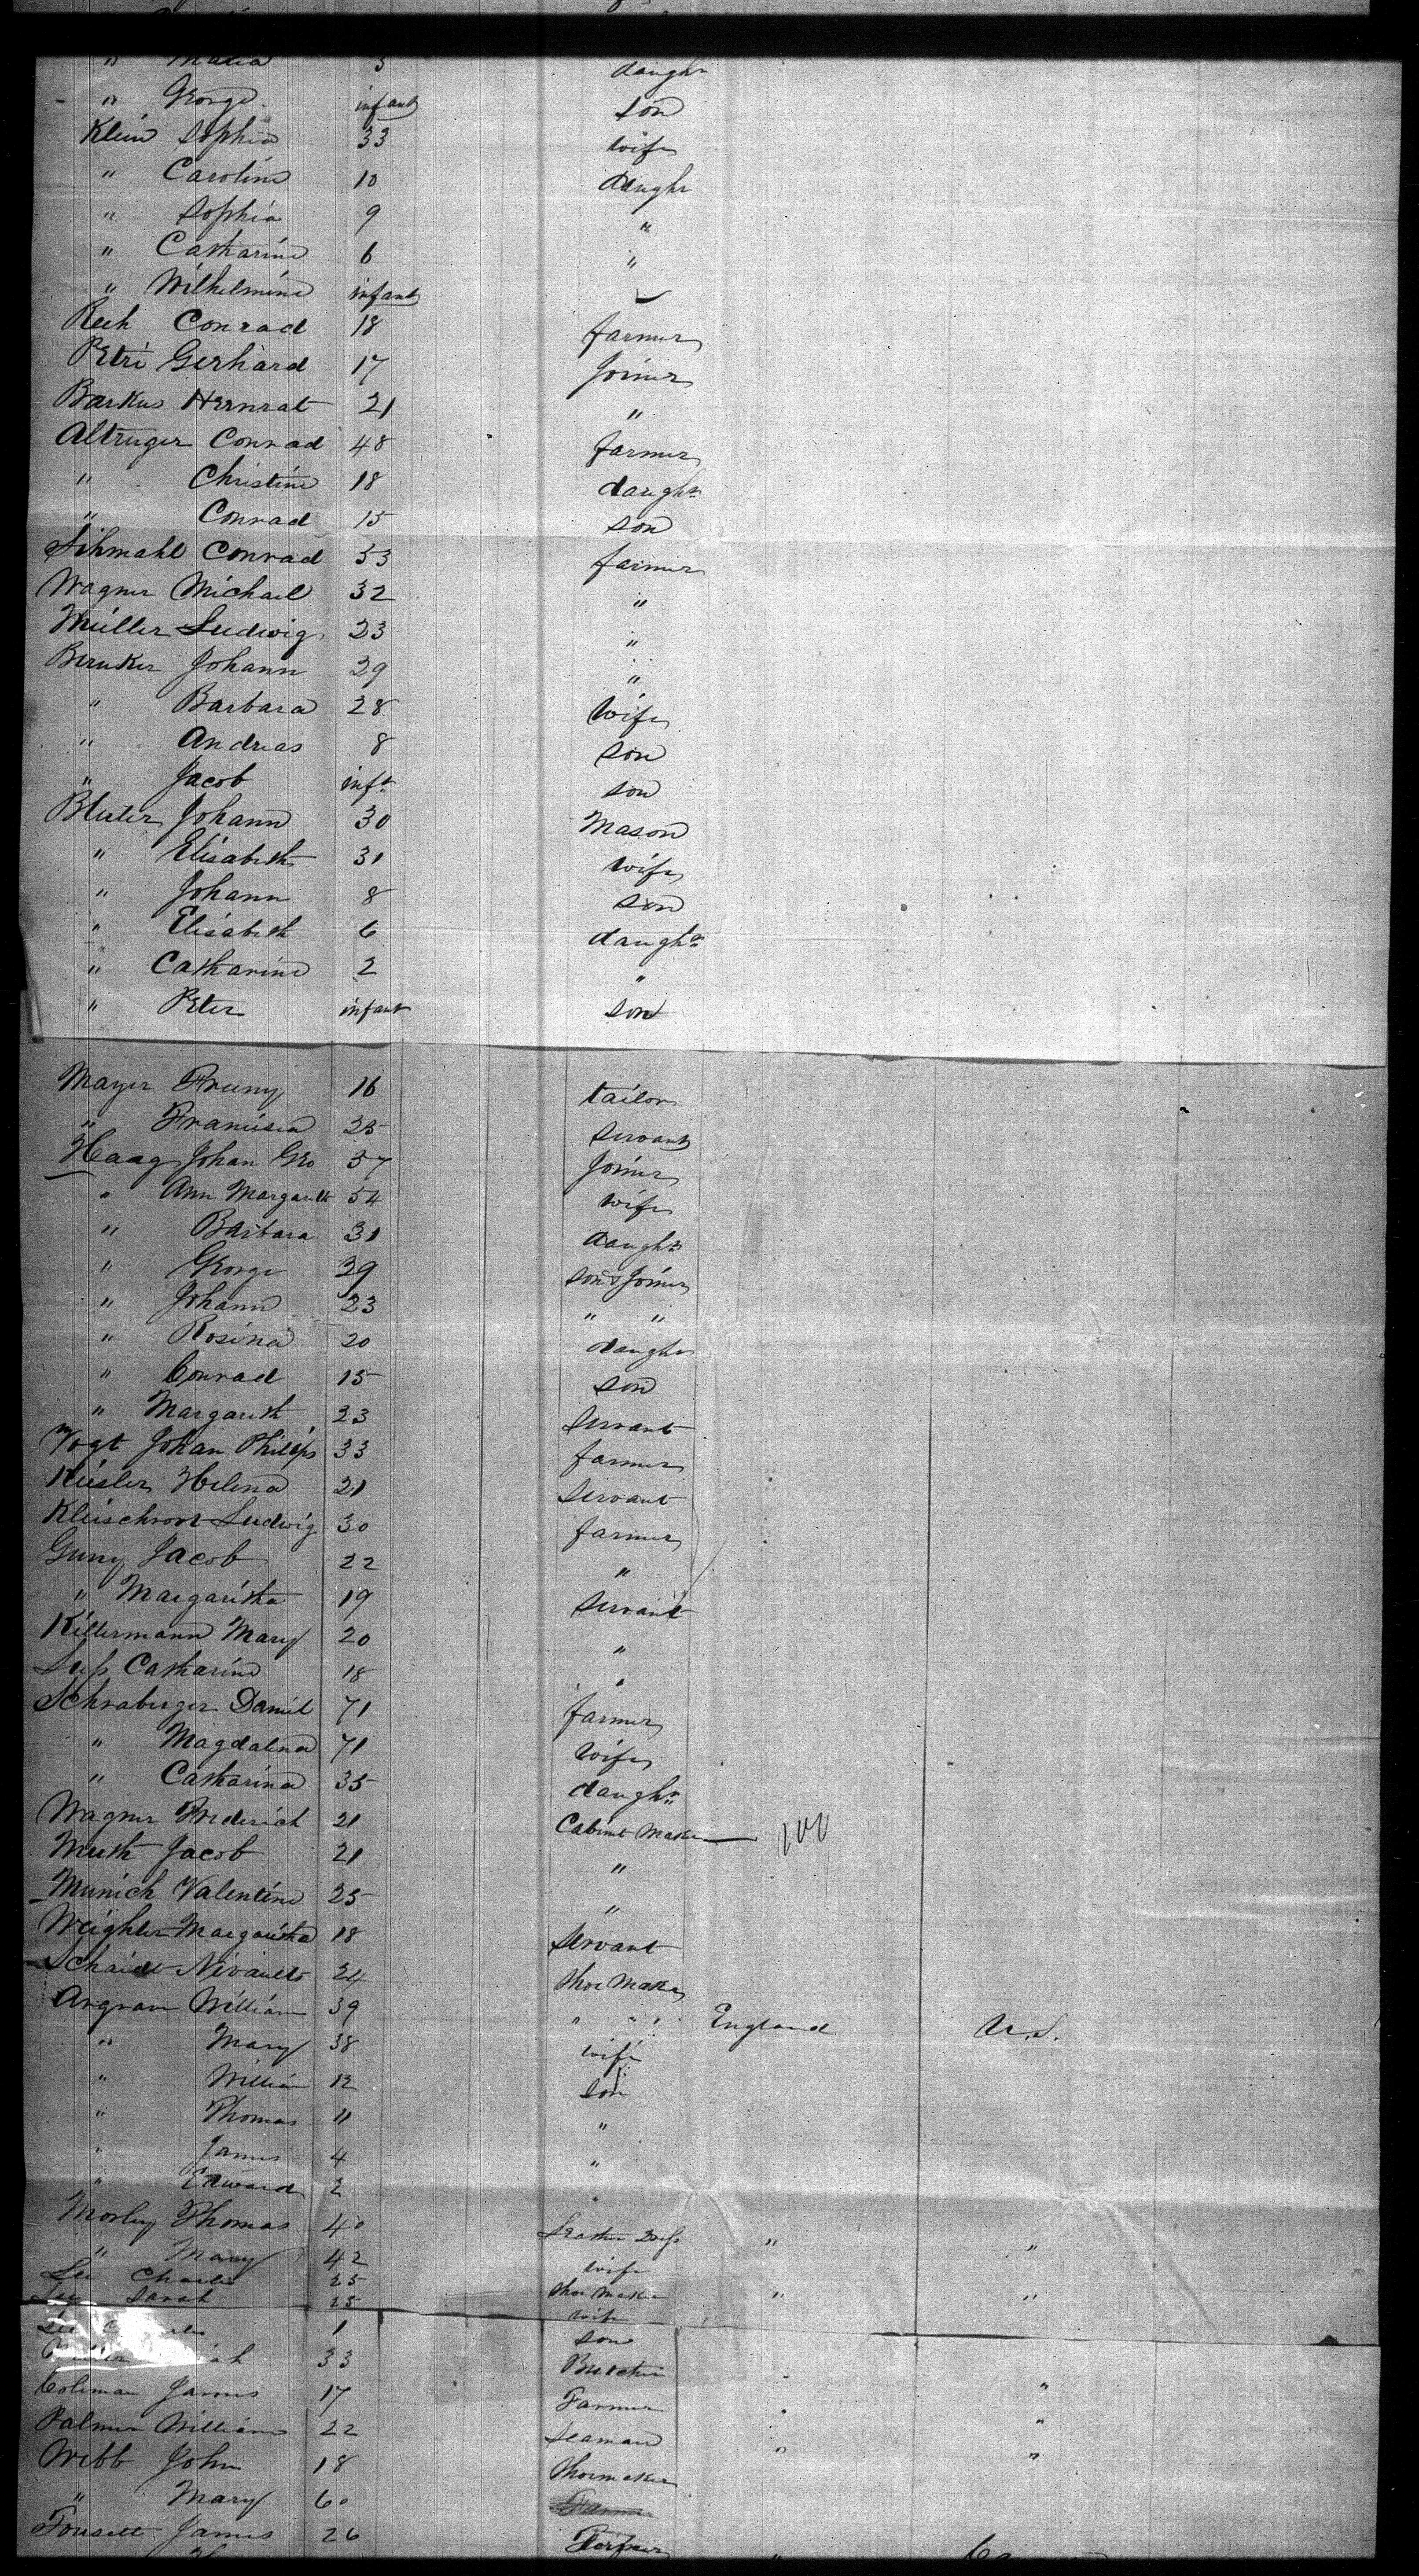 " Maria 3 daughr
" George infant son
Klein Sophia 33 wife
" Caroline 10 daughr
" Sophia 9 "
" Catharine 6 "
" Wilhelmine infant
Rech Conrad 18 farmer
Petri Gerhard 17 Joiner
Barkus Hernrat 21 "
Altruger Conrad 48 farmer
" Christine 18 daughr
" Conrad 15 son
Sihmahl Conrad 33 farmer
Wagner Michael 32 "
Müller Ludwig 23 "
Brunker Johann 29 "
" Barbara 28 wife
" Andreas 8 son
" Jacob inft son
Bluter Johann 30 Mason
" Elisabeth 31 wife
" Johann 8 son
" Elisabeth 6 daughr
" Catharine 2 "
" Peter infant son
Mayer 16 tailor
" Francisca 25 servant
Haag Johan Geo 57 Joiner
" Ann Margareth 54 wife
" Barbara 31 daughr
" George 29 son & Joiner
" Johann 23 " "
" Rosina 20 daughr
" Conrad 15 son
" Margareth 23 servant
Vogt Johan Philips 33 farmer
Kiesler Helena 21 servant
Kleischroot Ludwig 30 farmer
Guny Jacob 22 "
" Margaritha 19 servant
Killermann Mary 20 "
Sups Catharine 18 "
Schraberger Daniel 71 farmer
" Magdalena 71 wife
" Catharina 35 daughr
Wagner Frederich 21 Cabinet Maker
Muth Jacob 21 "
Munich Valentine 25 "
Weighler Margaritha 18 servant
Schaidt 24 Shoe Maker
Argrave William 39 " " England U.S.
" Mary 38 wife
" William 12 son
" Thomas 11 "
" James 4 "
" Edward 2 "
Morley Thomas 40 Leather " "
" Mary 42 wife
Lee Charles 25 Shoe Maker " "
Lee Sarah 25 wife
Lee 1 son
33 Butcher " "
Coleman James 17 Farmer " "
Palmer William 22 Seaman " "
Webb John 18 Shoemaker
" Mary 60 Farmer
Fousett James 26 "